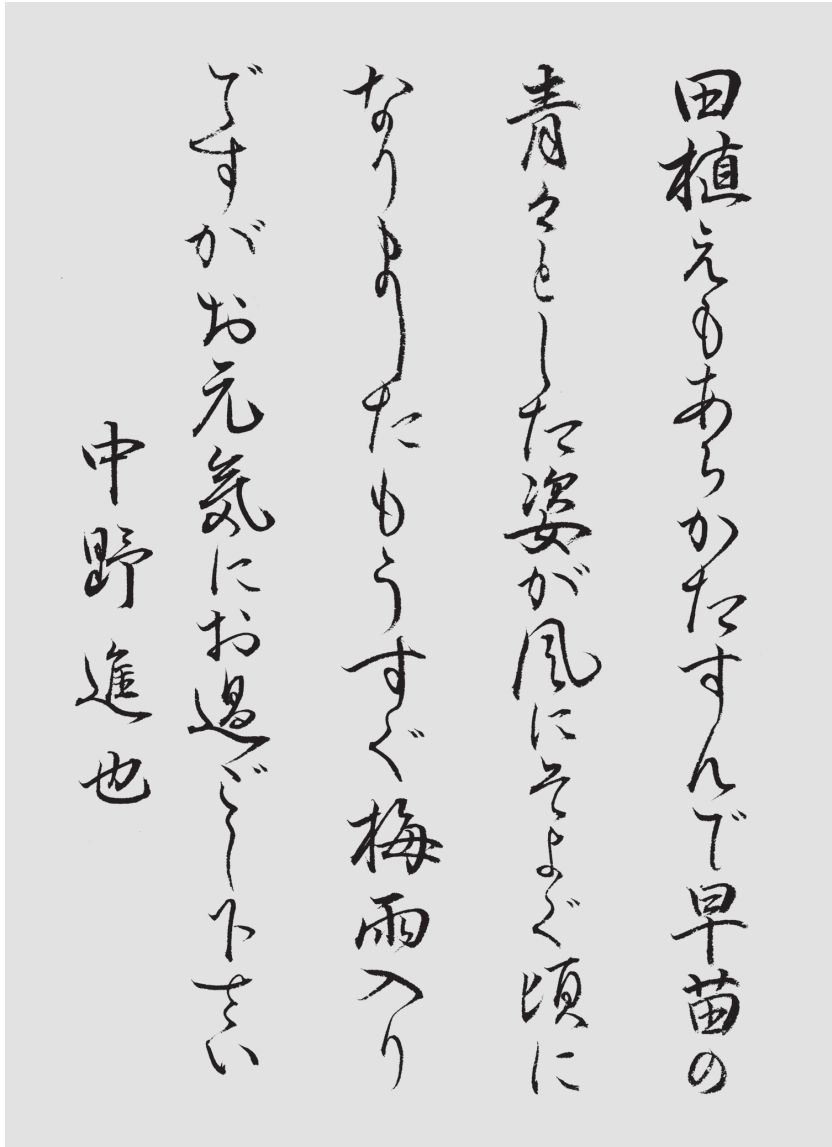 田植えもあらかたすんで早苗の
青々とした姿が風にそよぐ頃に
なりましたもうすぐ梅雨入り
ですがお元気にお過ごし下さい
中野進也